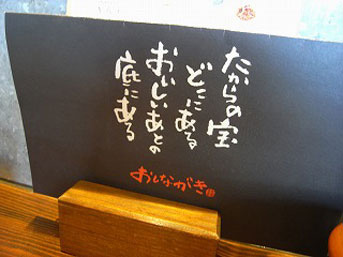 たからの宝
どこにある
おいしいあとの
底にある
おしながき